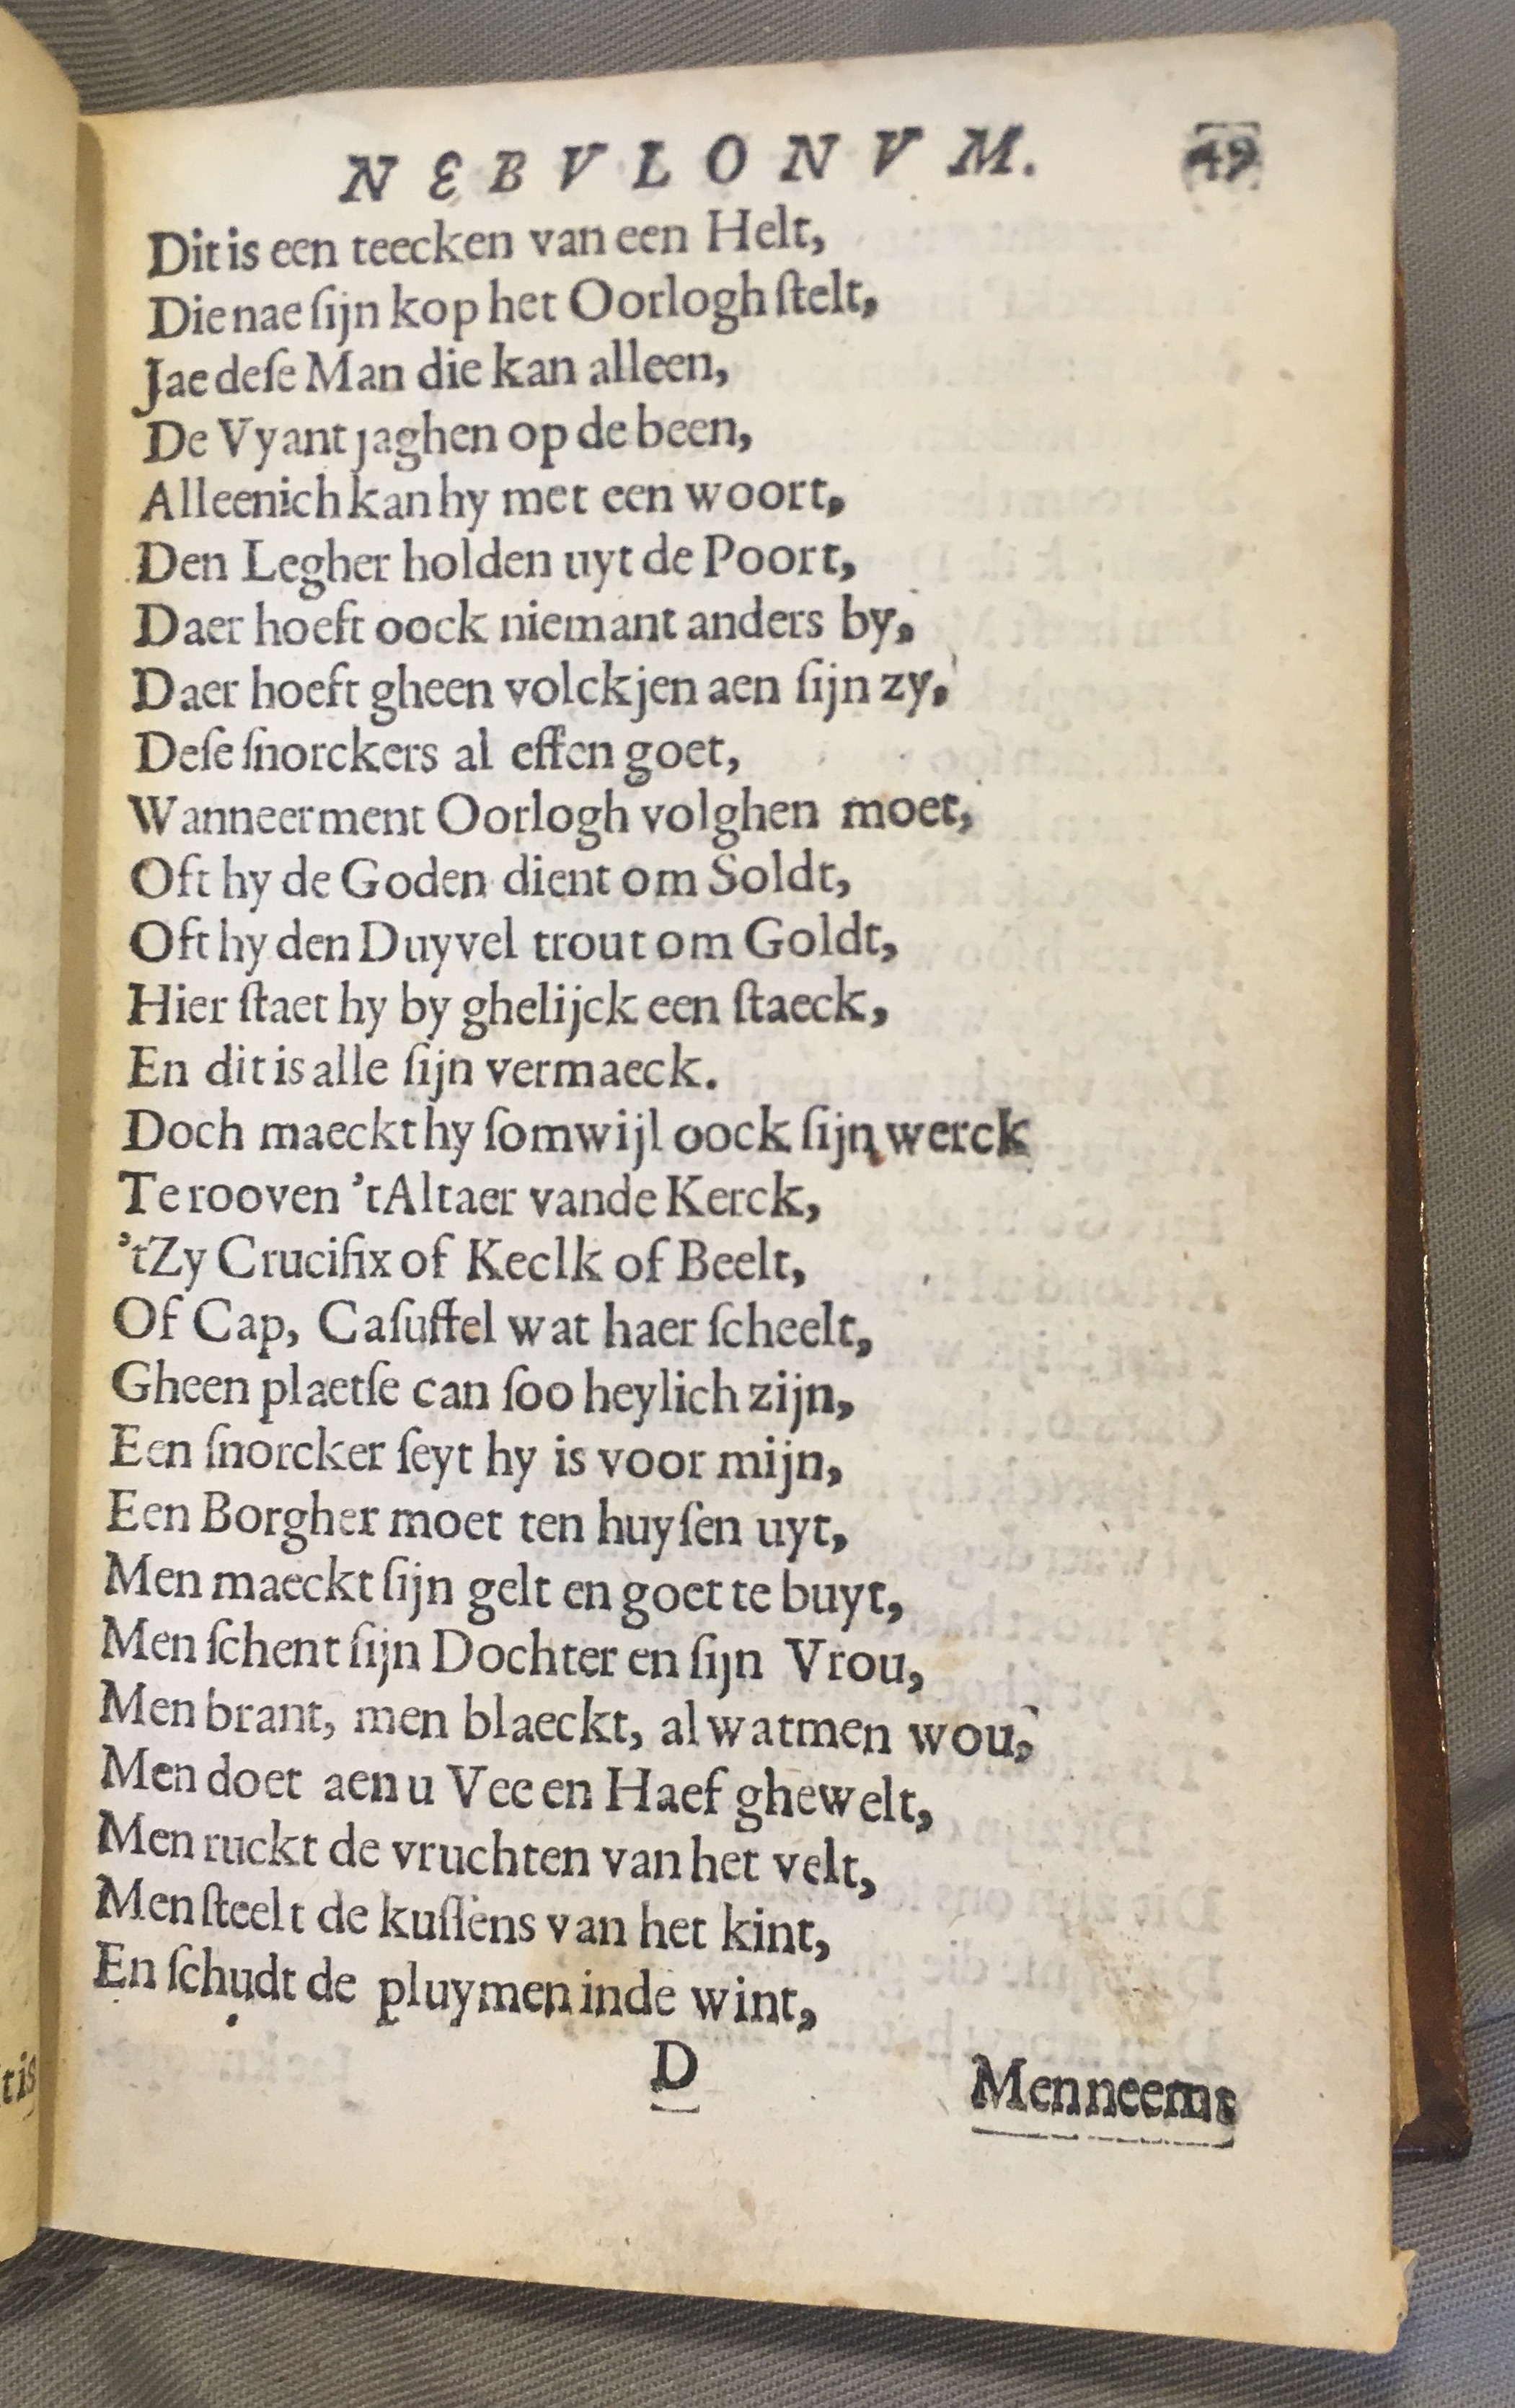 NEBVLONVM. 49
Dit is een teecken van een Helt,
Die nae ſijn kop het Oorlogh ſtelt,
Jae deſe Man die kan alleen,
De Vyant jaghen op de been,
Alleenich kan hy met een woort,
Den Legher holden uyt de Poort,
Daer hoeft oock niemant anders by,
Daer hoeft gheen volckjen aen ſijn zy,
Deſe ſnorckers al effen goet,
Wanneerment Oorlogh volghen moet,
Oft hy de Goden dient om Soldt,
Oft hy den Duyvel trout om Goldt,
Hier ſtaet hy by ghelijck een ſtaeck,
En dit is alle ſijn vermaeck.
Doch maeckt hy ſomwijl oock ſijn werck
Te rooven 'tAltaer vande Kerck,
'tZy Crucifix of Keclk of Beelt,
Of Cap, Caſuffel wat haer ſcheelt,
Gheen plaetſe can ſoo heylich zijn,
Een ſnorcker ſeyt hy is voor mijn,
Een Borgher moet ten huyſen uyt,
Men maeckt ſijn gelt en goet te buyt,
Men ſchent ſijn Dochter en ſijn Vrou,
Men brant, men blaeckt, al watmen wou,
Men doet aen u Vee en Haef ghewelt,
Men ruckt de vruchten van het velt,
Men ſteelt de kuſſens van het kint,
En ſchudt de pluymen inde wint,
D Men neemt
tis